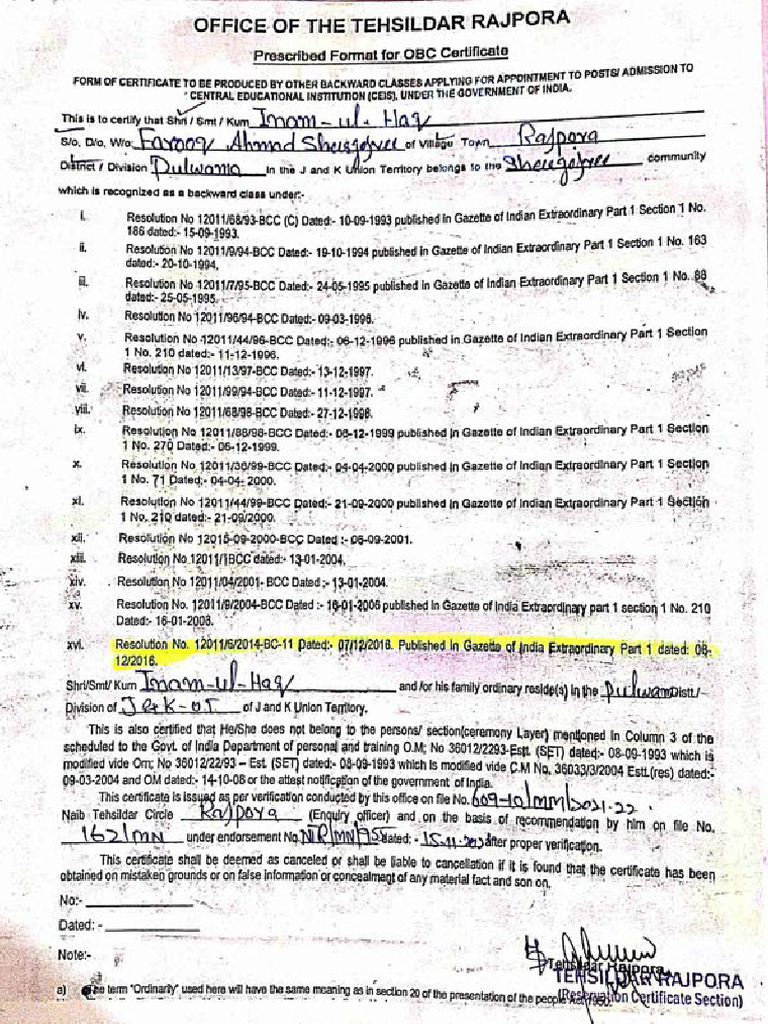 OFFICE OF THE TEHSILDAR RAJPORA
Prescribed Format for OBC Certificate
FORM OF CERTIFICATE TO BE PRODUCED BY OTHER BACKWARD CLASSES APPLYING FOR APPOINTMENT TO POSTS/ ADMISSION TO
CENTRAL EDUCATIONAL INSTITUTION (CEIS), UNDER THE GOVERNMENT OF INDIA.
This is to certify that Shri / Smt / Kum Inam-ul-Haq
S/o, D/o, W/o Farooq Ahmad Sheergojree of Village Town Rajpora
District / Division Pulwama in the J and K Union Territory belongs to the Sheergojree community
which is recognized as a backward class under:-
i. Resolution No 12011/68/93-BCC (C) Dated:- 10-09-1993 published in Gazette of Indian Extraordinary Part 1 Section 1 No.
186 dated:- 15-09-1993.
ii. Resolution No 12011/9/94-BCC Dated:- 19-10-1994 published in Gazette of Indian Extraordinary Part 1 Section 1 No. 163
dated:- 20-10-1994.
iii. Resolution No 12011/7/95-BCC Dated:- 24-05-1995 published in Gazette of Indian Extraordinary Part 1 Section 1 No. 88
dated:- 25-05-1995.
iv. Resolution No 12011/96/94-BCC Dated:- 09-03-1996.
v. Resolution No 12011/44/96-BCC Dated:- 06-12-1996 published in Gazette of Indian Extraordinary Part 1 Section
1 No. 210 dated:- 11-12-1996.
vi. Resolution No 12011/13/97-BCC Dated:- 13-12-1997.
vii. Resolution No 12011/99/94-BCC Dated:- 11-12-1997.
viii. Resolution No 12011/68/98-BCC Dated:- 27-12-1998.
ix. Resolution No 12011/88/98-BCC Dated:- 06-12-1999 published in Gazette of Indian Extraordinary Part 1 Section
1 No. 270 Dated:- 06-12-1999.
x. Resolution No 12011/36/99-BCC Dated:- 04-04-2000 published in Gazette of Indian Extraordinary Part 1 Section
1 No. 71 Dated:- 04-04- 2000.
xi. Resolution No 12011/44/99-BCC Dated:- 21-09-2000 published in Gazette of Indian Extraordinary Part 1 Section
1 No. 210 dated:- 21-09/2000.
xii. Resolution No 12015-09-2000-BCC Dated :- 06-09-2001.
xiii. Resolution No 12011/1BCC dated:- 13-01-2004.
xiv. Resolution No 12011/04/2001- BCC Dated :- 13-01-2004.
xv. Resolution No 12011/9/2004-BCC Dated :- 16-01-2006 published in Gazette of India Extraordinary part 1 section 1 No. 210
Dated:- 16-01-2006.
xvi. Resolution No. 12011/6/2014-BC-11 Dated:- 07/12/2016. Published in Gazette of India Extraordinary Part 1 dated: 08-
12/2016.
Shri/Smt/ Kum Inam-ul-Haq and/or his family ordinary reside(s) in the Pulwama Distt./
Division of J&K-UT of J and K Union Territory.
This is also certified that He/She does not belong to the persons/ section(ceremony Layer) mentioned in Column 3 of the
scheduled to the Govt. of India Department of personal and training O.M; No 36012/2293-Estt. (SET) dated:- 08-09-1993 which is
modified vide Om; No 36012/22/93 – Est. (SET) dated:- 08-09-1993 which is modified vide C.M No. 36033/3/2004 Estt.(res) dated:-
09-03-2004 and OM dated:- 14-10-08 or the attest notification of the government of India.
This certificate is issued as per verification conducted by this office on file No. 609-10/MM/2021-22.
Naib Tehsildar Circle Rajpora (Enquiry officer) and on the basis of recommendation by him on file No.
162/MN under endorsement No. dated: - 15-11- after proper verification.
This certificate shall be deemed as canceled or shall be liable to cancellation if it is found that the certificate has been
obtained on mistaken grounds or on false information or concealment of any material fact and son on.
No:-
Dated: -
Note:-
Tehsildar Rajpora
TEHSILDAR RAJPORA
(Reservation Certificate Section)
a) The term "Ordinarily" used here will have the same meaning as in section 20 of the presentation of the people Act 1950.